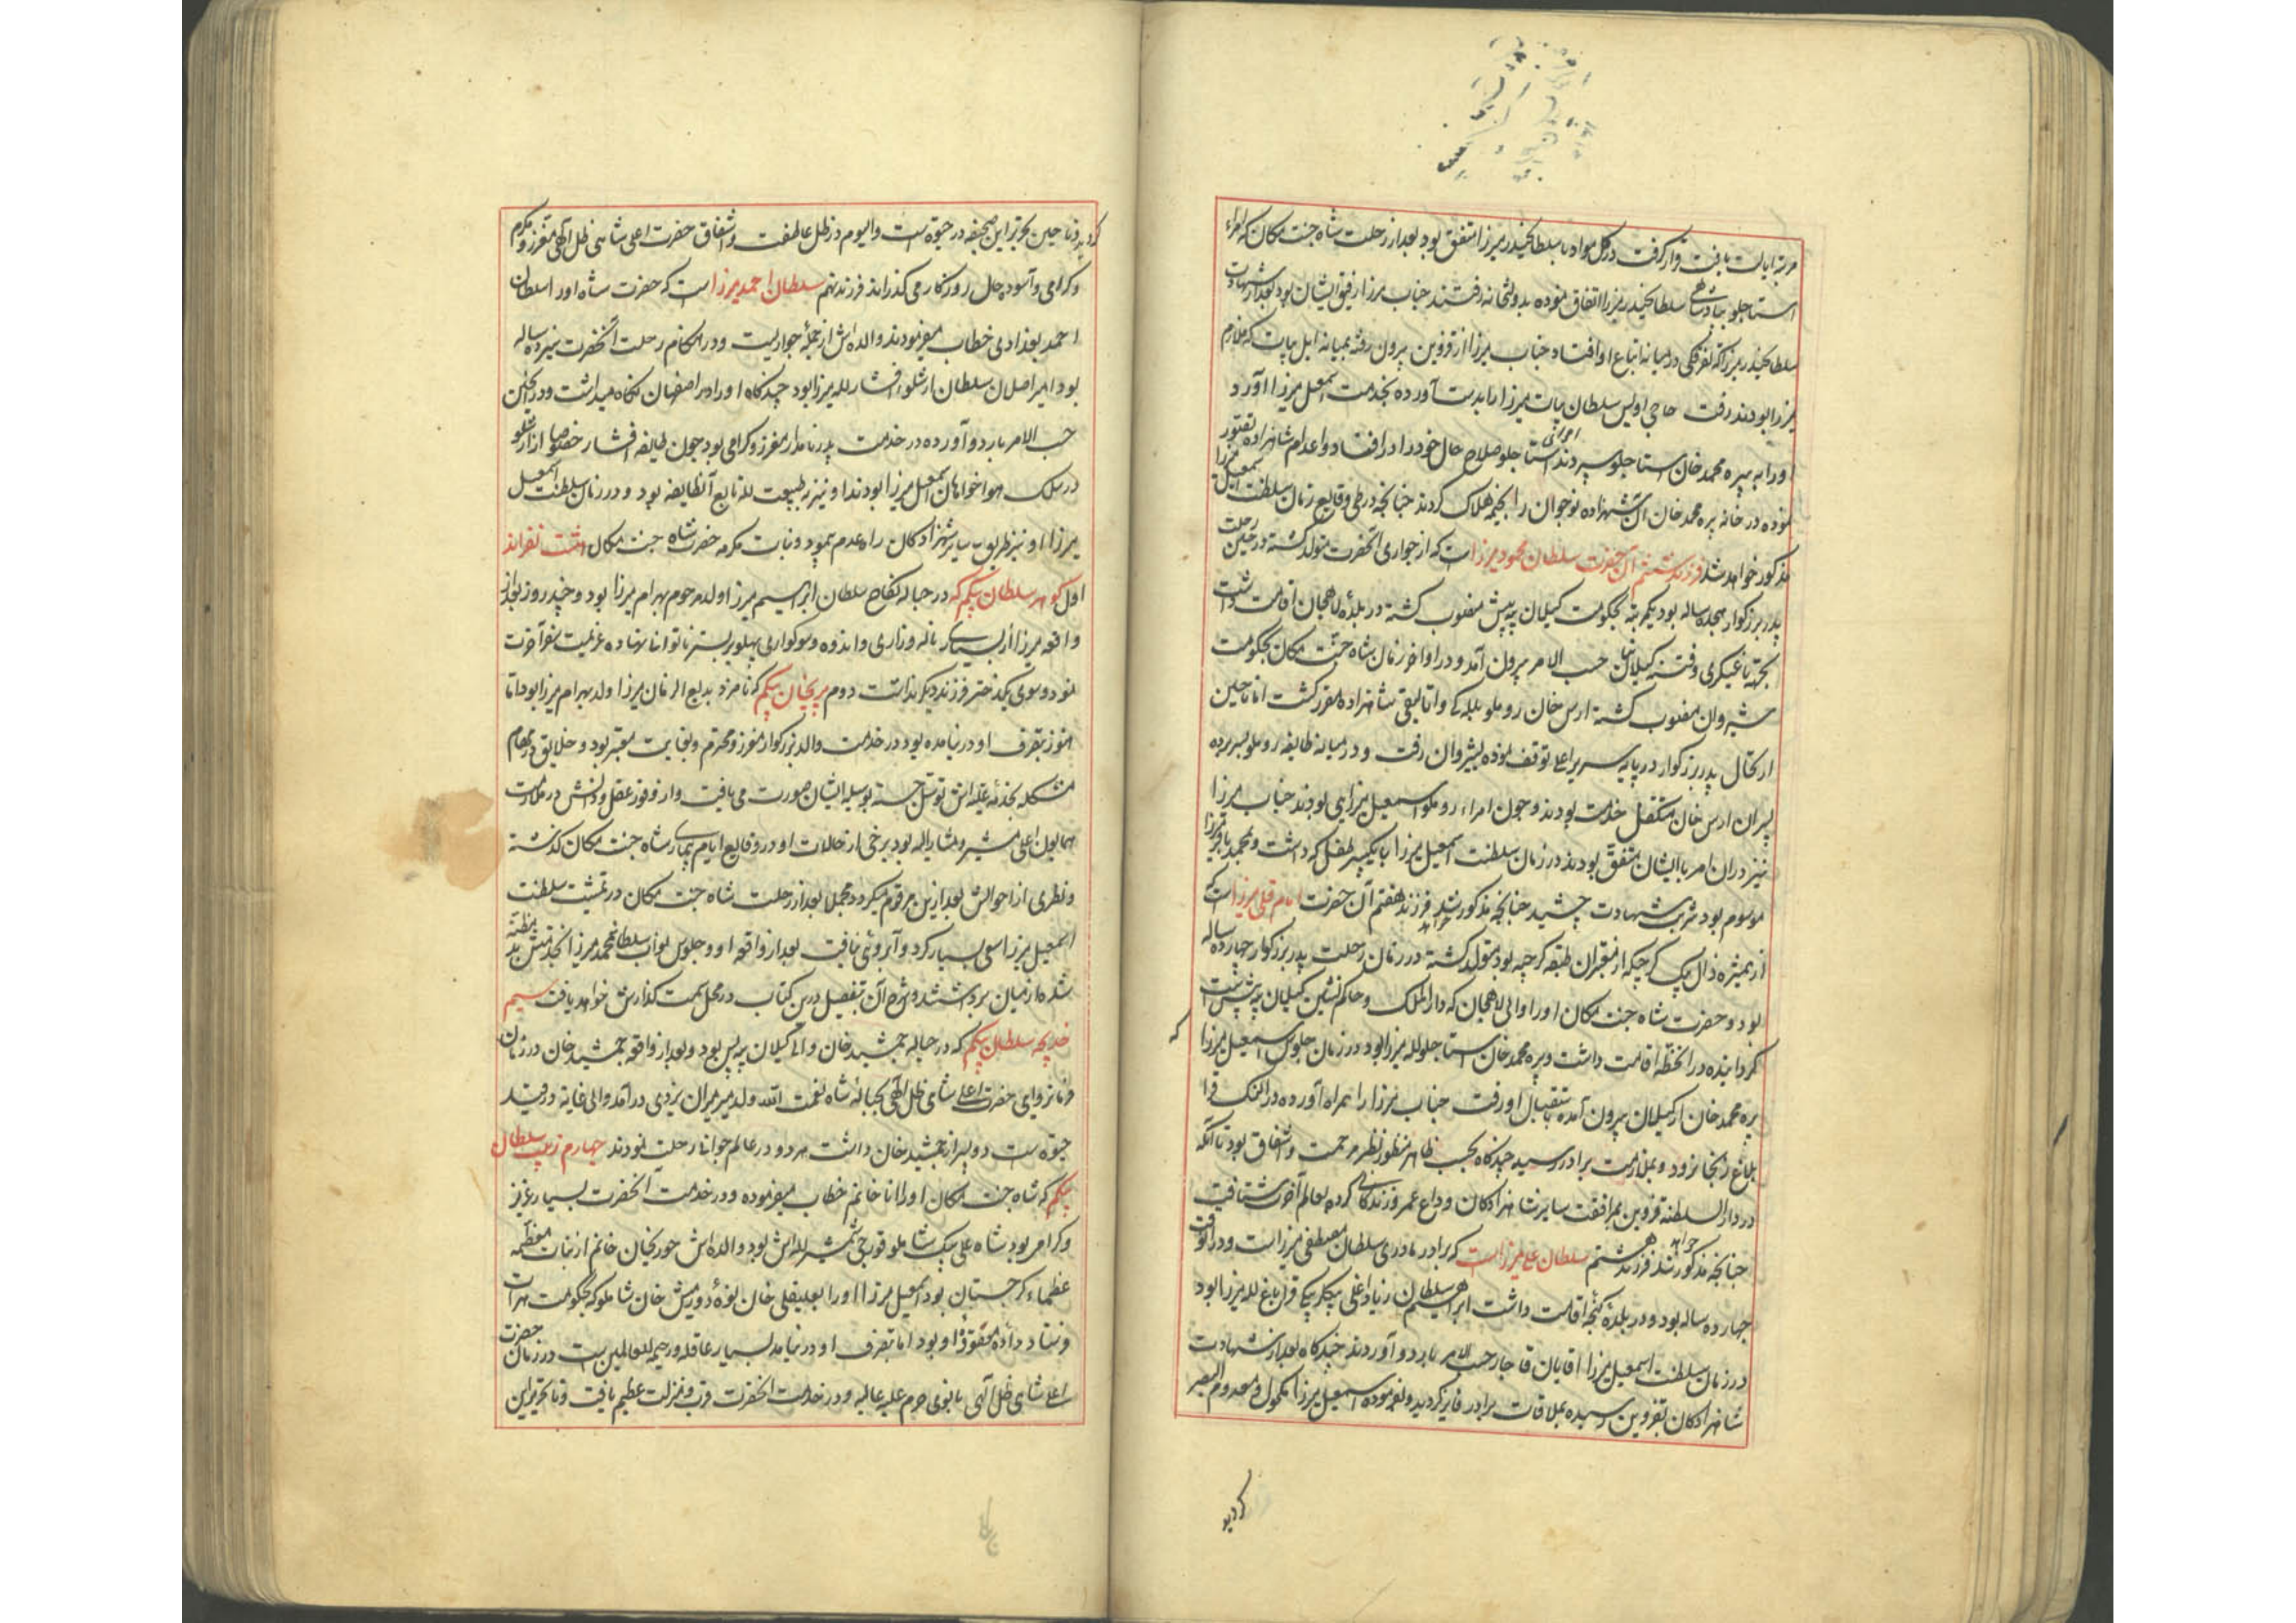 مرتبه ایالت یافت و قرار گرفت در کل مواد با سلطان حیدر میرزا متفق بود بعد از رحلت شاه جنت مکان که امراء
استاجلو بپادشاهی سلطان حیدر میرزا اتفاق نموده بدولتخانه رفتند جناب میرزا رفیق ایشان بود بعد از شهادت
سلطان حیدر میرزا که تفرقگی در میانه اتباع او افتاد جناب میرزا از قزوین بیرون رفته بمیانه ایل بیات که ملازم
میرزا بودند رفت حاجی اویس سلطان بیات میرزا را بدست آورده بخدمت اسمعیل میرزا آورد
او را به پیره محمد خان استاجلو سپردند امرای استاجلو صلاح حال خود را در افتاد و اعدام شاهزاده تصور
نموده در خانه پیره محمد خان آن شهزاده نوجوان را بخبه هلاک کردند چنانچه در طی وقایع زمان سلطنت اسمعیل میرزا
مذکور خواهد شد فرزند ششم آن حضرت سلطان محمود میرزا است که از جواری آنحضرت متولد گشته در حین رحلت
پدر بزرگوار هجده ساله بود یکمرتبه بحکومت گیلان بیه پیش منصوب گشته در بلده لاهجان اقامت داشت
بجهة یاغیگری و فتنه گیلانیان حسب الامر بیرون آمد و در اواخر زمان شاه جنت مکان بحکومت
شیروان منصوب گشته ارس خان روملو بللگی و اتالیقی شاهزاده مقرر گشت اما تا حین
ارتحال پدر بزرگوار در پایه سریر اعلی توقف نموده بشیروان نرفت و در میانه طایفه روملو بسر برده
پسران ارس خان متکفل خدمت بودند و چون امراء روملو اسمعیل میرزایی بودند جناب میرزا
نیز در آن امر با ایشان متفق بودند در زمان سلطنت اسمعیل میرزا با یک پسر طفل که داشت و محمد باقر میرزا
موسوم بود شربت شهادت چشید چنانچه مذکور خواهد شد فرزند هفتم آن حضرت امام قلی میرزا است که
از همشیره زال بیک گرجی که از معتبران طبقه گرجیه بود متولد گشته در زمان رحلت پدر بزرگوار چهارده ساله
بود و حضرت شاه جنت مکان او را والی لاهجان که دارالملک و حاکم نشین گیلان بیه پیش است
گردانیده در آنخطه اقامت داشت و پیره محمد خان استاجلو لله میرزا بود در زمان جلوس اسمعیل میرزا
پیره محمد خان از گیلان بیرون آمده باستقبال او رفت جناب میرزا را همراه آورده در النک قرا
بلاغ زنجانرود و بملازمت برادر رسید چندگاه بحسب ظاهر منظور نظر مرحمت و اشفاق بود تا آنکه
در دارالسلطنه قزوین بمرافقت سایر شاهزادگان وداع عمر و زندگانی کرده بعالم آخرت شتافت
چنانچه مذکور خواهد شد فرزند هشتم سلطان علی میرزا است که برادر مادری سلطان مصطفی میرزا است و در آنوقت
چهارده ساله بود و در بلده گنجه اقامت داشت ابراهیم سلطان زیاد اغلی بیگلربیگی قراباغ لله میرزا بود
در زمان سلطنت اسمعیل میرزا آقایان قاجار حسب الامر باردو آوردند چندگاه بعد از شهادت
شاهزادگان بقزوین رسیده بملاقات برادر فایز گردید و بفرموده اسمعیل میرزا مکحول و معدوم البصر
گردید
گردید و تا حین تحریر این صحیفه در حیوة است و الیوم در ظل عاطفت و اشفاق حضرت اعلی شاهی ظل اللهی معزز و مکرم
و گرامی و آسوده حال روزگار می گذراند فرزند نهم سلطان احمد میرزا است که حضرت شاه او را سلطان
احمد بغدادی خطاب میفرمودند والده اش از جمله جواریست و در هنگام رحلت آنحضرت سیزده ساله
بود امیر اصلان سلطان ارشلو افشار لله میرزا بود چندگاه او را در اصفهان نگاه میداشت و در حین
حسب الامر باردو آورده در خدمت پدر نامدار معزز و گرامی بود چون طایفه افشار خصوصا ارشلو
در سلک هواخواهان اسمعیل میرزا بودند او نیز به طبیعت لله تابع آن طایفه بود و در زمان سلطنت اسمعیل
میرزا او نیز بطریق سایر شهزادگان راه عدم پیمود و بنات مکرمه حضرت شاه جنت مکان هشت نفراند
اول گوهر سلطان بیگم که در حباله نکاح سلطان ابراهیم میرزا ولد مرحوم بهرام میرزا بود و چند روز بعد از
واقعه میرزا از بسیاری ناله و زاری و اندوه و سوگواری پهلو بر بستر ناتوانی نهاده عزیمت سفر آخرت
نمود و سوی یکدختر فرزند دیگر نداشت دوم پریخان بیگم که نامزد بدیع الزمان میرزا ولد بهرام میرزا بود اما
هنوز بتصرف او در نیامده بود در خدمت والد بزرگوار معزز و محترم و بغایت معتبر بود و خلایق در مهام
مشکله بخدمه علیه اش توسل جسته بوسیله ایشان صورت می یافت و از وفور عقل و دانش در ملازمت
همایون اعلی مشیر و مشار الیه بود برخی از حالات او در وقایع ایام بیماری شاه جنت مکان گذشته
و نظری از احوالش بعد ازین مرقوم میگردد مجملا بعد از رحلت شاه جنت مکان در تمشیت سلطنت
اسمعیل میرزا سعی بسیار کرد و آبروئی نیافت بعد از واقعه او و جلوس نواب سلطان محمد میرزا
شده از میان برداشتند و شرح آن بتفصیل درین کتاب در محل سمت گذارش خواهد یافت سیم
خدیجه سلطان بیگم که در حباله جمشید خان والی گیلان بیه پس بود و بعد از واقعه جمشید خان در زمان
فرمانروایی حضرت اعلی شاهی ظل اللهی بحباله شاه نعمت الله ولد میر میران یزدی درآمد و الی غایة در قید
حیوة است دو پسر از جمشید خان داشت هر دو در عالم جوانی رحلت نمودند چهارم زینب سلطان
بیگم که شاه جنت مکان او را انا خانم خطاب میفرموده و در خدمت آنحضرت بسیار عزیز
و گرامی بود شاه علی بیک شاملو قورچی شمشیر لله اش بود والده اش حوریخان خانم از بنات معظمه
عظماء گرجستان بود اسمعیل میرزا او را بعلیقلی خان نوه دورمش خان شاملو که بحکومت هرات
فرستاد داده معقوده او بود اما بتصرف او در نیامد بسیار عاقله و رحیمه للعالمین است در زمان حضرت
اعلی شاهی ظل اللهی بانوی حرم علیه عالیه و در خدمت آنحضرت قرب و منزلت عظیم یافت و تا تحریر این